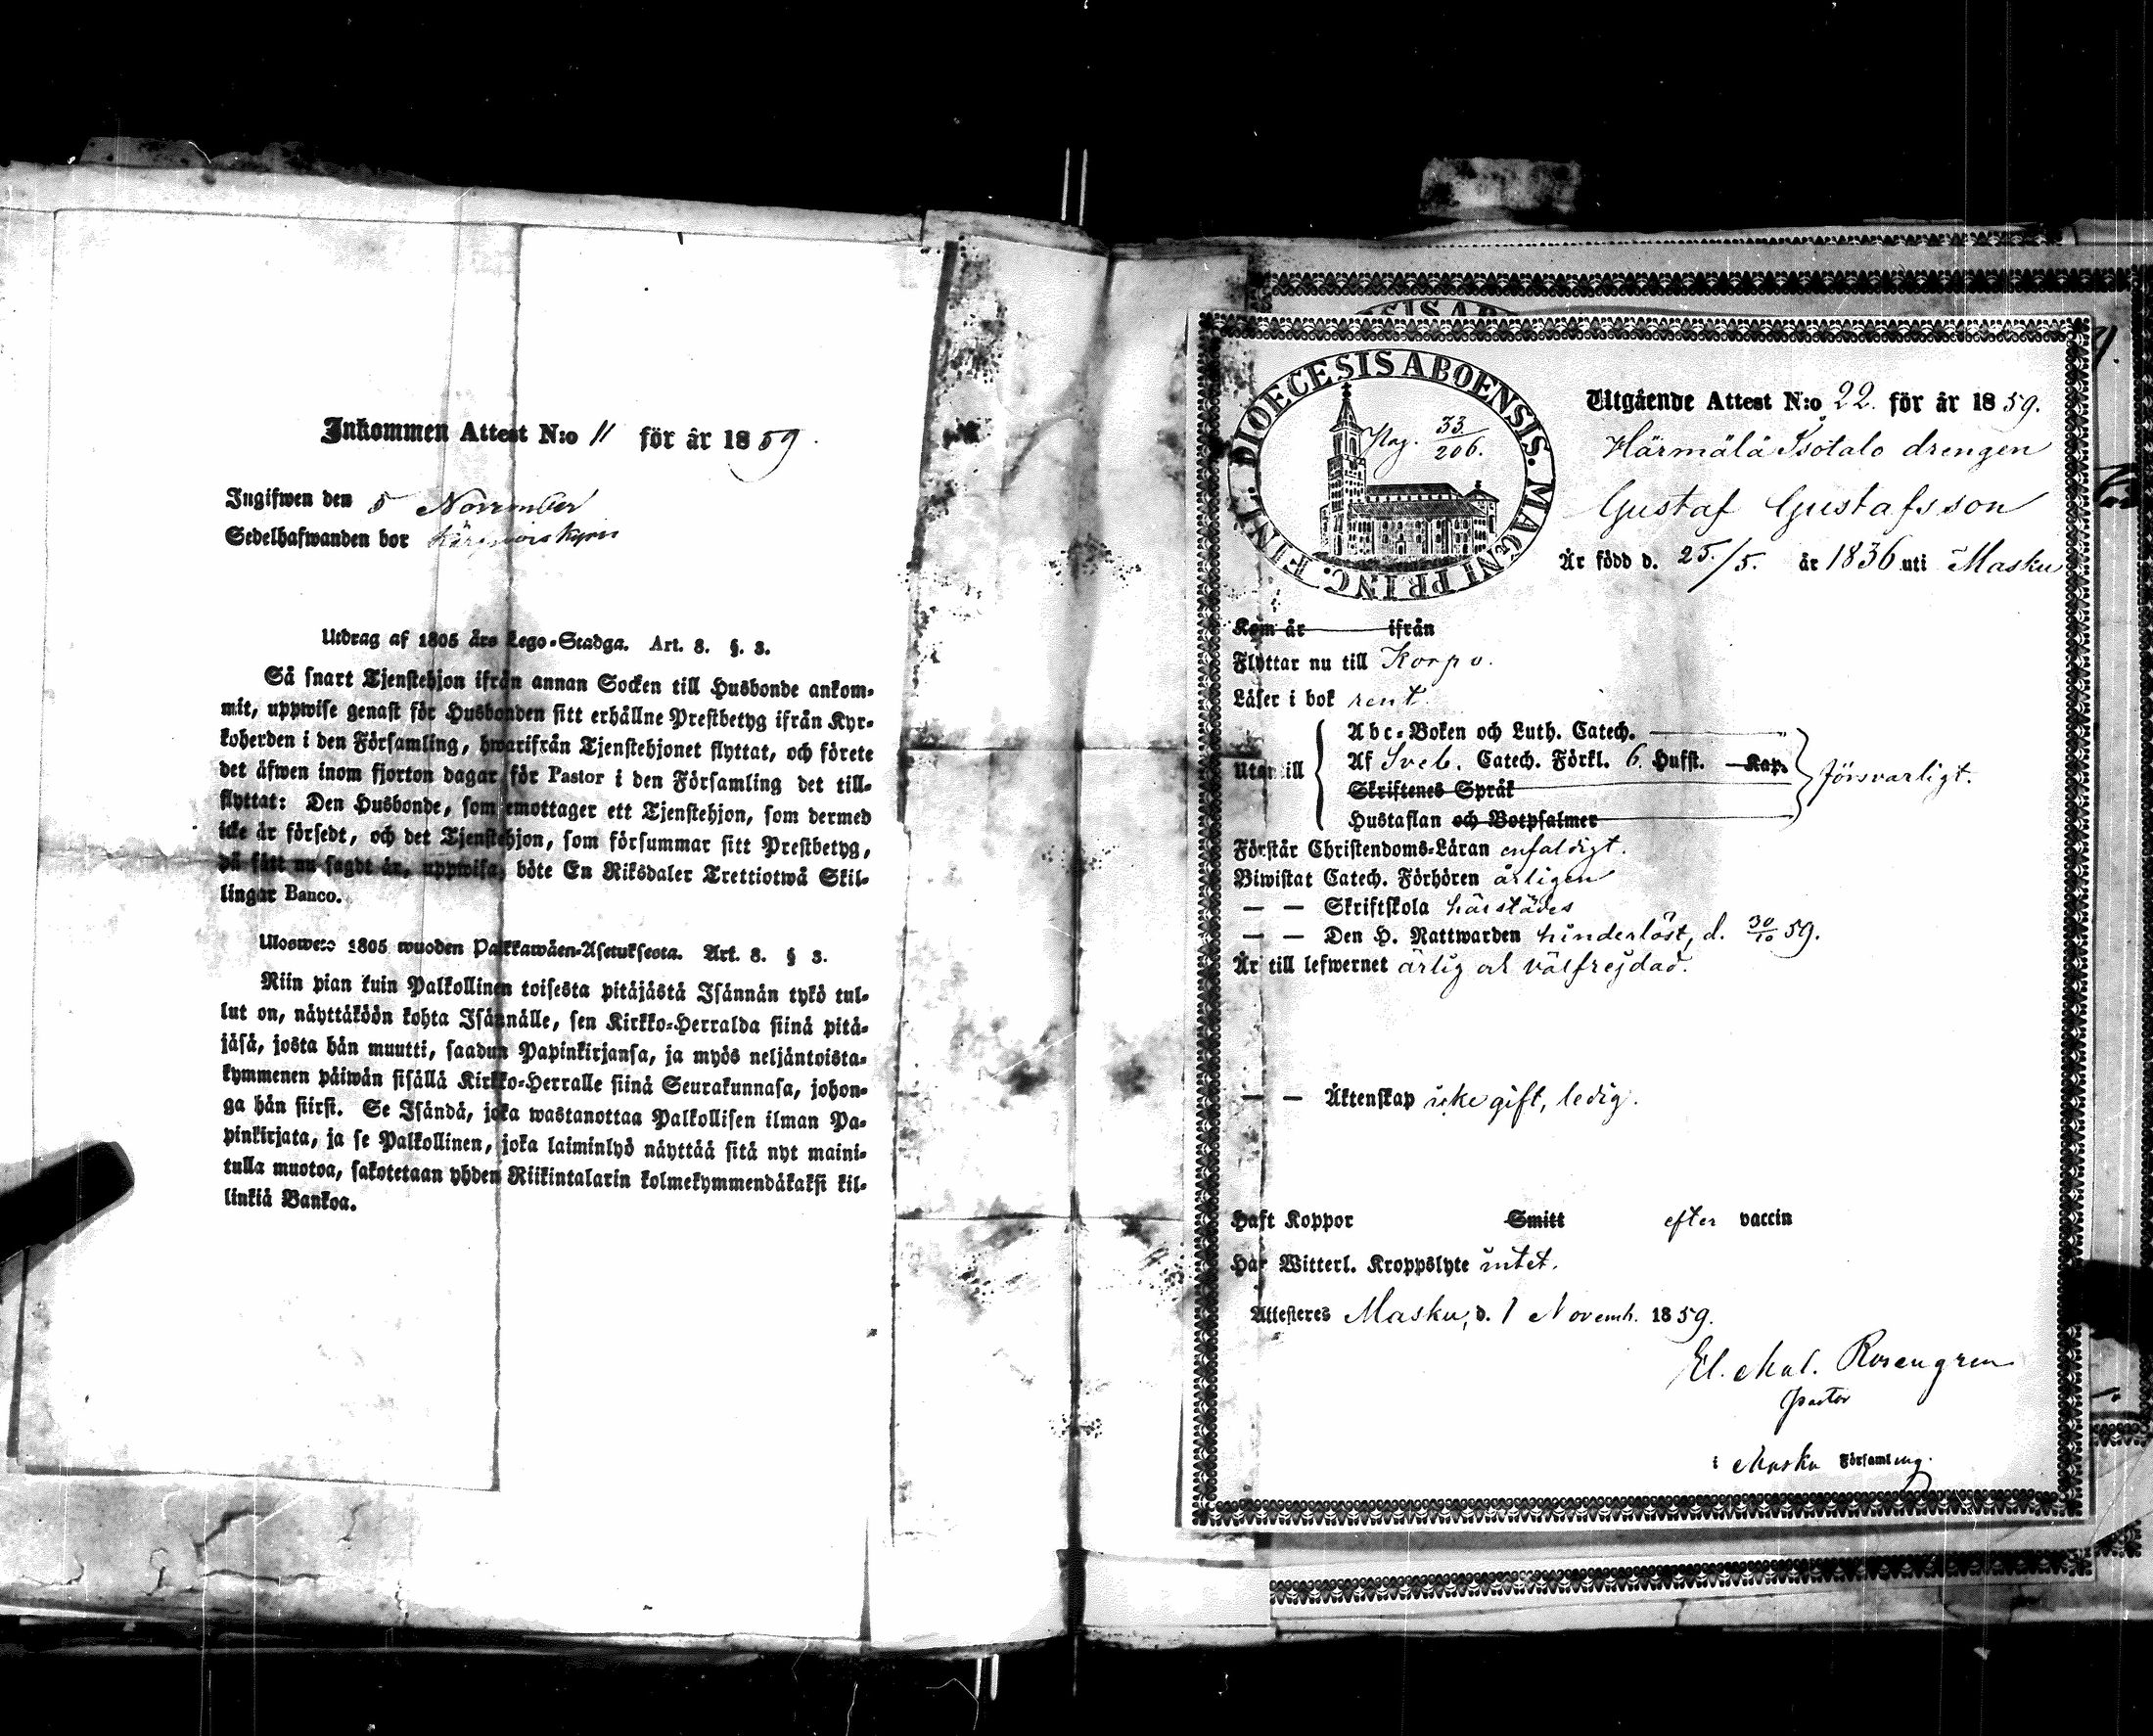 Inkommen Attest N:o 11 för år 1859.
Ingifwen den 5 November
Sedelhafwanden bor
Utdrag af 1805 års Lego-Stadga. Art. 8. §. 3.
Så snart Tjenstehjon ifrån annan Socken till Husbonde ankom-
mit, uppwise genast för Husbonden sitt erhållne Prestbetyg ifrån Kyr-
koherden i den Församling, hwarifrån Tjenstehjonet flyttat, och förete
det äfwen inom fjorton dagar för Pastor i den Församling det till-
flyttat: Den Husbonde, som emottager ett Tjenstehjon, som dermed
icke är försedt, och det Tjenstehjon, som försummar sitt Prestbetyg,
på sätt nu sagdt är, uppwisa, böte En Riksdaler Trettiotwå Skil-
lingar Banco.
Ulosweto 1805 wuoden Palkkawäen-Asetuksesta. Art. 8. § 3.
Niin pian kuin Palkollinen toisesta pitäjästä Isännän tykö tul-
lut on, näyttäköön kohta Isännälle, sen Kirkko-Herralda siinä pitä-
jäsä, josta hän muutti, saadun Papinkirjansa, ja myös neljäntoista-
kymmenen päiwän sisällä Kirkko-Herralle siinä Seurakunnasa, johon-
ga hän siirsi. Se Isändä, joka wastanottaa Palkollisen ilman Pa-
pinkirjata, ja se Palkollinen, joka laiminlyö näyttää sitä nyt maini-
tulla muotoa, sakotetaan yhden Riikintalarin kolmekymmendäkaksi kil-
linkiä Bankoa.
DIOECESIS ABOENSIS. MAGNI PRINC. FINL.
Pag. 33/206.
Utgående Attest N:o 22. för år 1859.
Härmälä Isotalo drengen
Gustaf Gustafsson
Är född d. 25./5. år 1836 uti Masku
Kom år ifrån
Flyttar nu till Korpo.
Läser i bok rent.
Abc-Boken och Luth. Catech.
Utan till Af Sveb. Catech. Förkl. 6. Hufst. Kap. försvarligt.
Skriftenes Språk
Hustaflan och Botpsalmer
Förstår Christendoms-Läran enfaldigt.
Biwistat Catech. Förhören årligen
— — Skriftskola härstädes
— — Den H. Nattwarden hinderlöst, d. 30/10 59.
Är till lefwernet ärlig och välfrejdad.
— — Äktenskap icke gift, ledig.
Haft Koppor Smitt efter vaccin
Har Witterl. Kroppslyte intet.
Attesteres Masku, d. 1 Novemb. 1859.
El. Mal. Rosengren
Pastor
i Masku Församling.